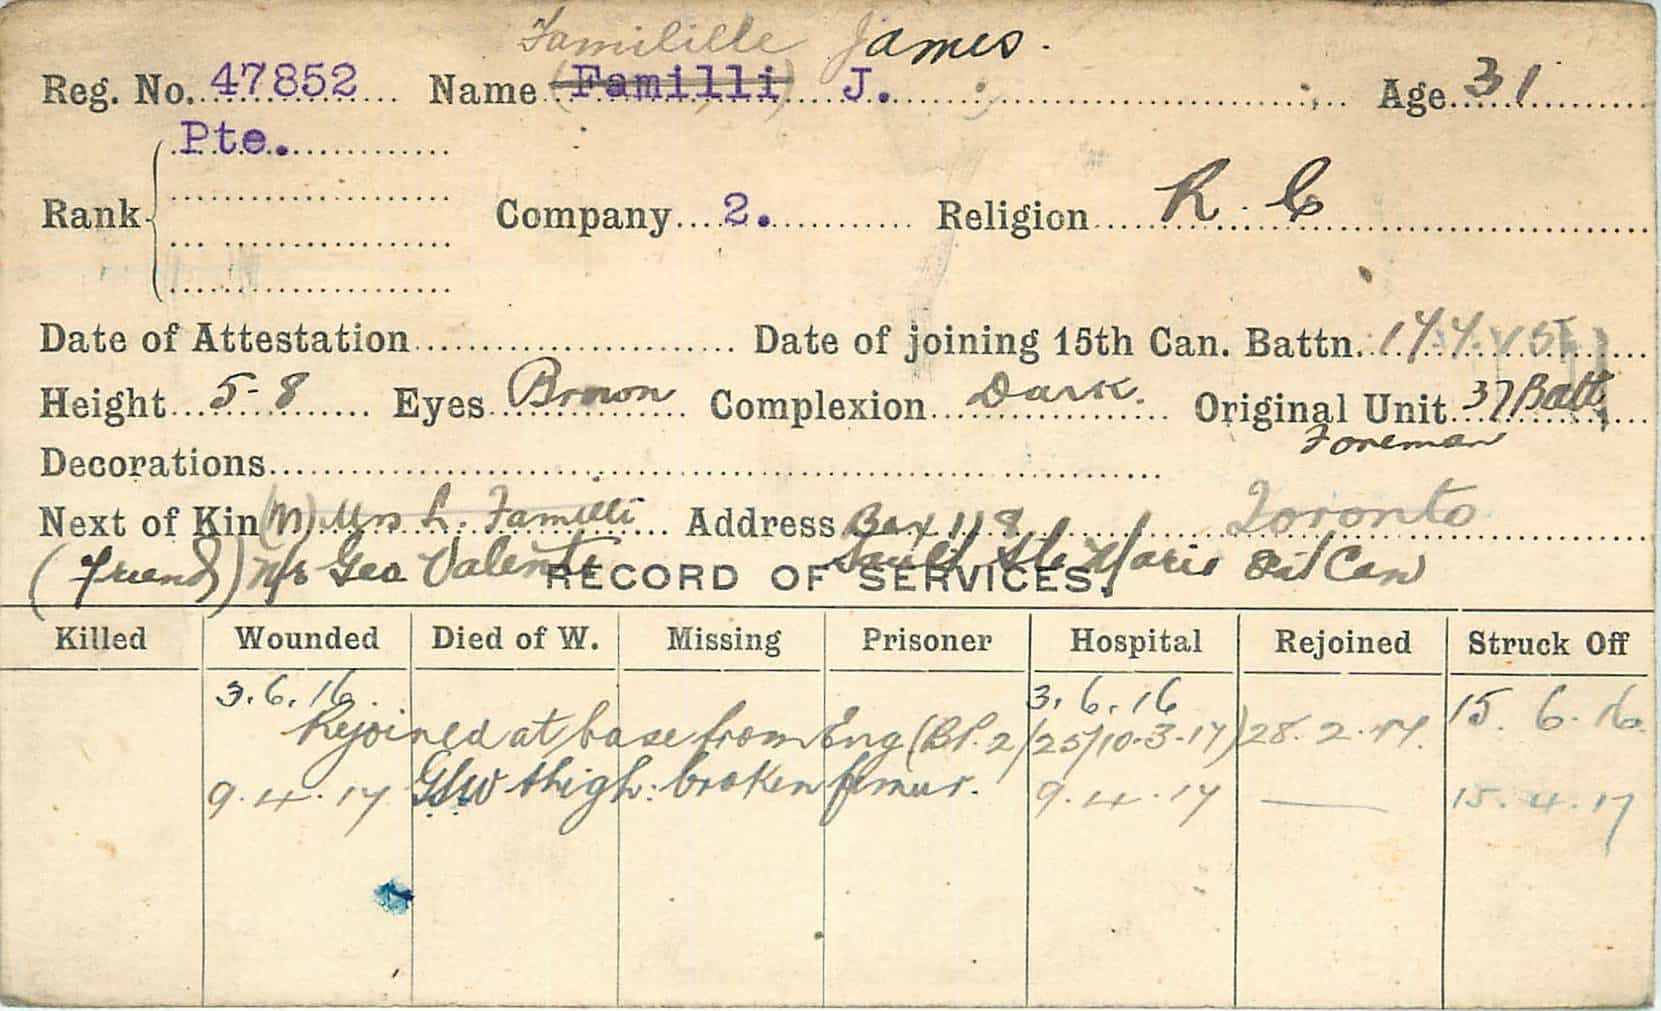 Familille James.
Reg. No. 47852 Name (Familli) J. Age 31
Pte.
Rank Company 2. Religion R. C
Date of Attestation Date of joining 15th Can. Battn.
Height 5-8 Eyes Brown Complexion Dark. Original Unit 37 Batt
Foreman
Decorations
Next of Kin (M) Mrs L. Familli Address Box 118 Toronto
(friend) Mr Geo Valente Sault Ste Marie Ont Can
RECORD OF SERVICES.
Killed Wounded Died of W. Missing Prisoner Hospital Rejoined Struck Off
3.6.16. 3.6.16 15.6.16.
Rejoined at base from Eng (Bf. 2/25/10-3-17) 28.2.17.
9.4.17 GSW thigh: broken femur. 9.4.17 — 15.4.17